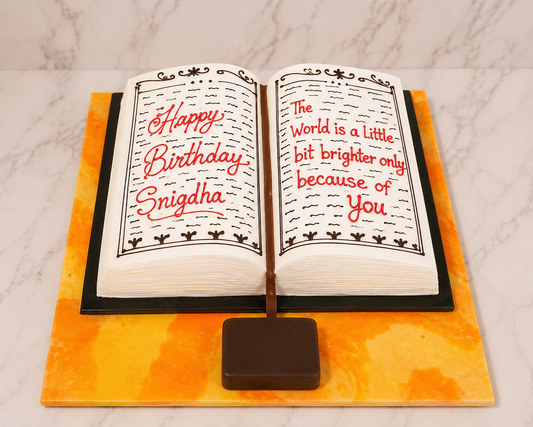 Happy
Birthday
Snigdha
The
World is a Little
bit brighter only
because of
You